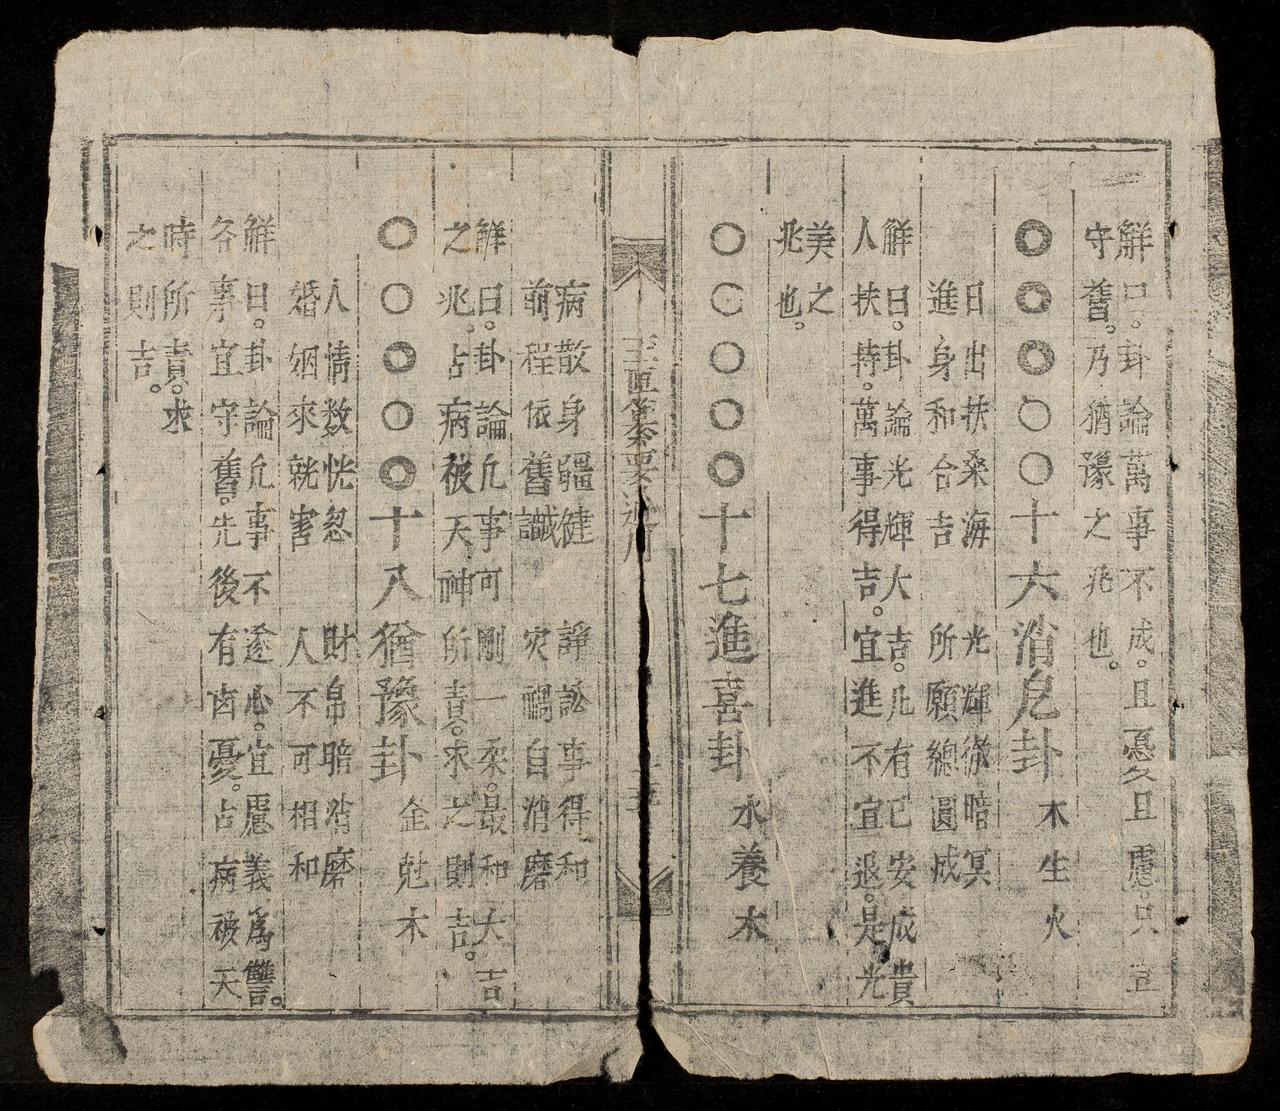 解曰。卦論萬事不成。且憂久且慮。只宜
守舊。乃猶豫之兆也。
十六消危卦 木生火
日出扶桑海 光輝徹暗冥
進身和合吉 所願總圓成
解曰。卦論光輝大吉。凡有已安成貴
人扶持。萬事得吉。宜進不宜退。是光
美之
兆也。
〇〇〇〇〇十七進喜卦 水養木
玉匣纂要通用
病散身疆健 諍訟事得和
前程依舊讖 灾禍自消磨
解曰。卦論凢事可剛一柔。最和大吉
之兆。占病被天神所責。求之則吉。
十八猶豫卦 金尅木
人情数恍忽 財帛暗消磨
婚姻來就害 人不可相和
解曰。卦論凢事不遂心。宜慮義爲讐。
各事宜守舊。先後有卤憂。占病被天
時所責。求
之則吉。